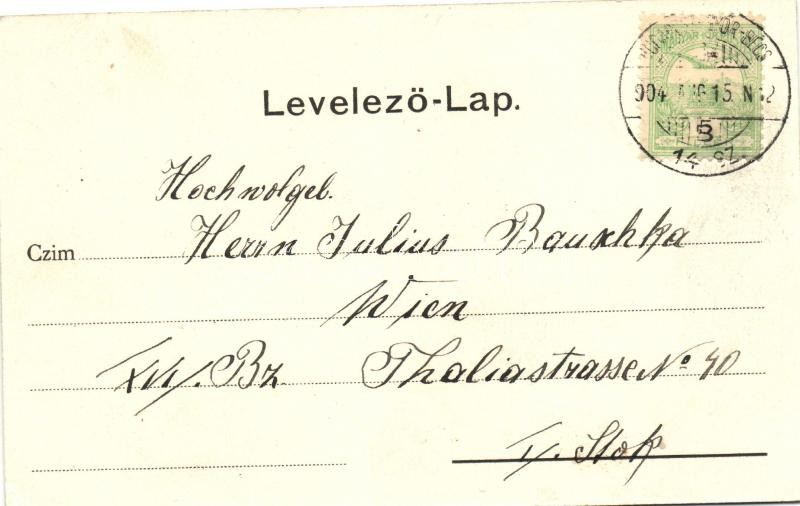 MAGYAR
GYŐR-BÉCS
904 AUG 15 N 12
14 SZ.
Levelező-Lap.
Hochwolgeb.
Czim Herrn Julius Bauxhka
Wien
XVI/. Bz. Thaliastrasse No 40
Stok